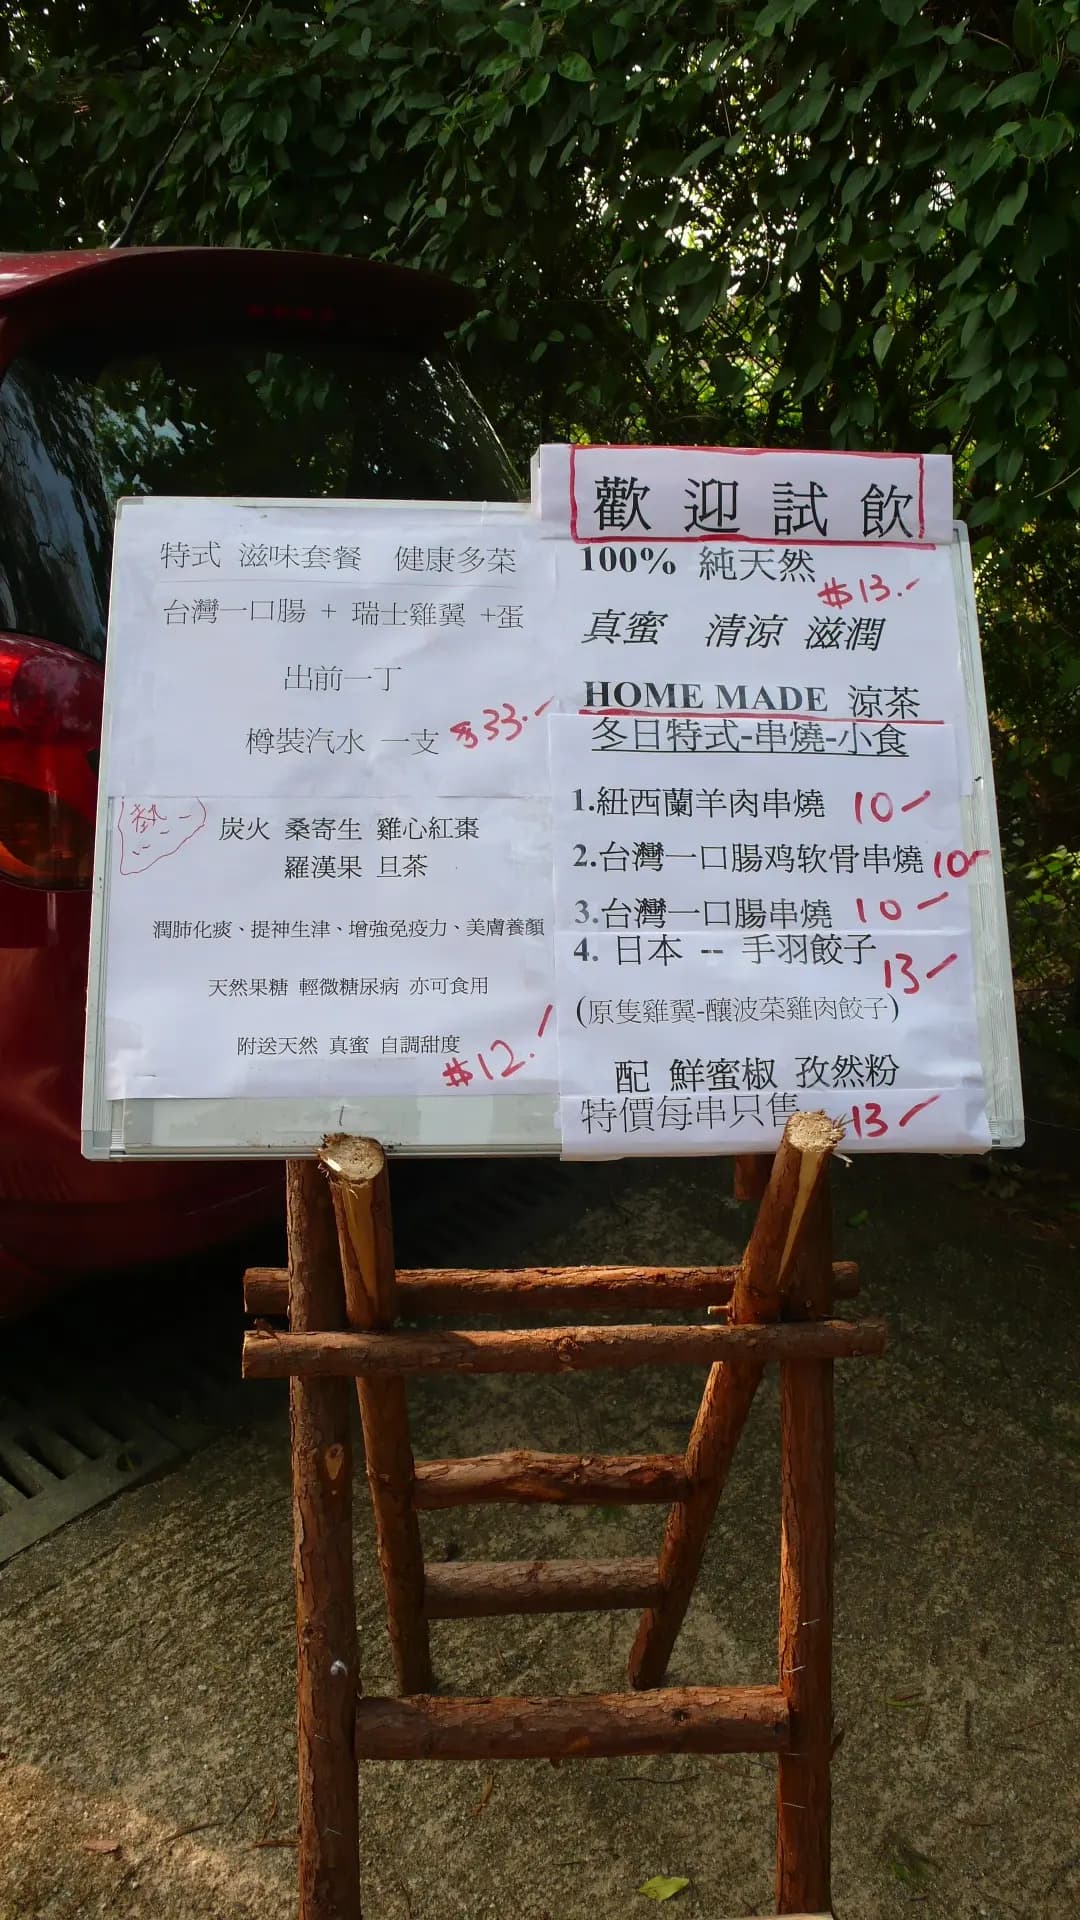 特式 滋味套餐 健康多菜
台灣一口腸 + 瑞士雞翼 +蛋
出前一丁
樽裝汽水 一支 $33.-
熱
炭火 桑寄生 雞心紅棗
羅漢果 旦茶
潤肺化痰、提神生津、增強免疫力、美膚養顏
天然果糖 輕微糖尿病 亦可食用
附送天然 真蜜 自調甜度
$12.-
歡迎試飲
100% 純天然 $13.-
真蜜 清涼 滋潤
HOME MADE 涼茶
冬日特式-串燒-小食
1.紐西蘭羊肉串燒 10-
2.台灣一口腸鸡软骨串燒 10-
3.台灣一口腸串燒 10-
4. 日本 -- 手羽餃子 13-
(原隻雞翼-釀波菜雞肉餃子)
配 鮮蜜椒 孜然粉
特價每串只售 13-